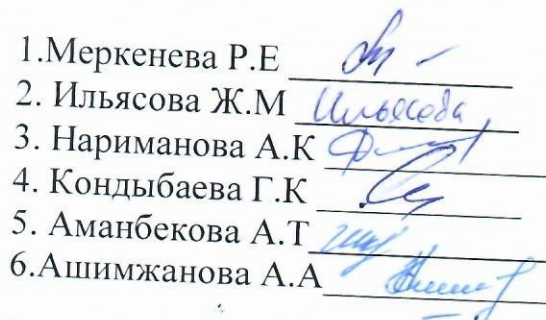 1.Меркенева Р.Е
2. Ильясова Ж.М Ильясова
3. Нариманова А.К
4. Кондыбаева Г.К
5. Аманбекова А.Т
6.Ашимжанова А.А